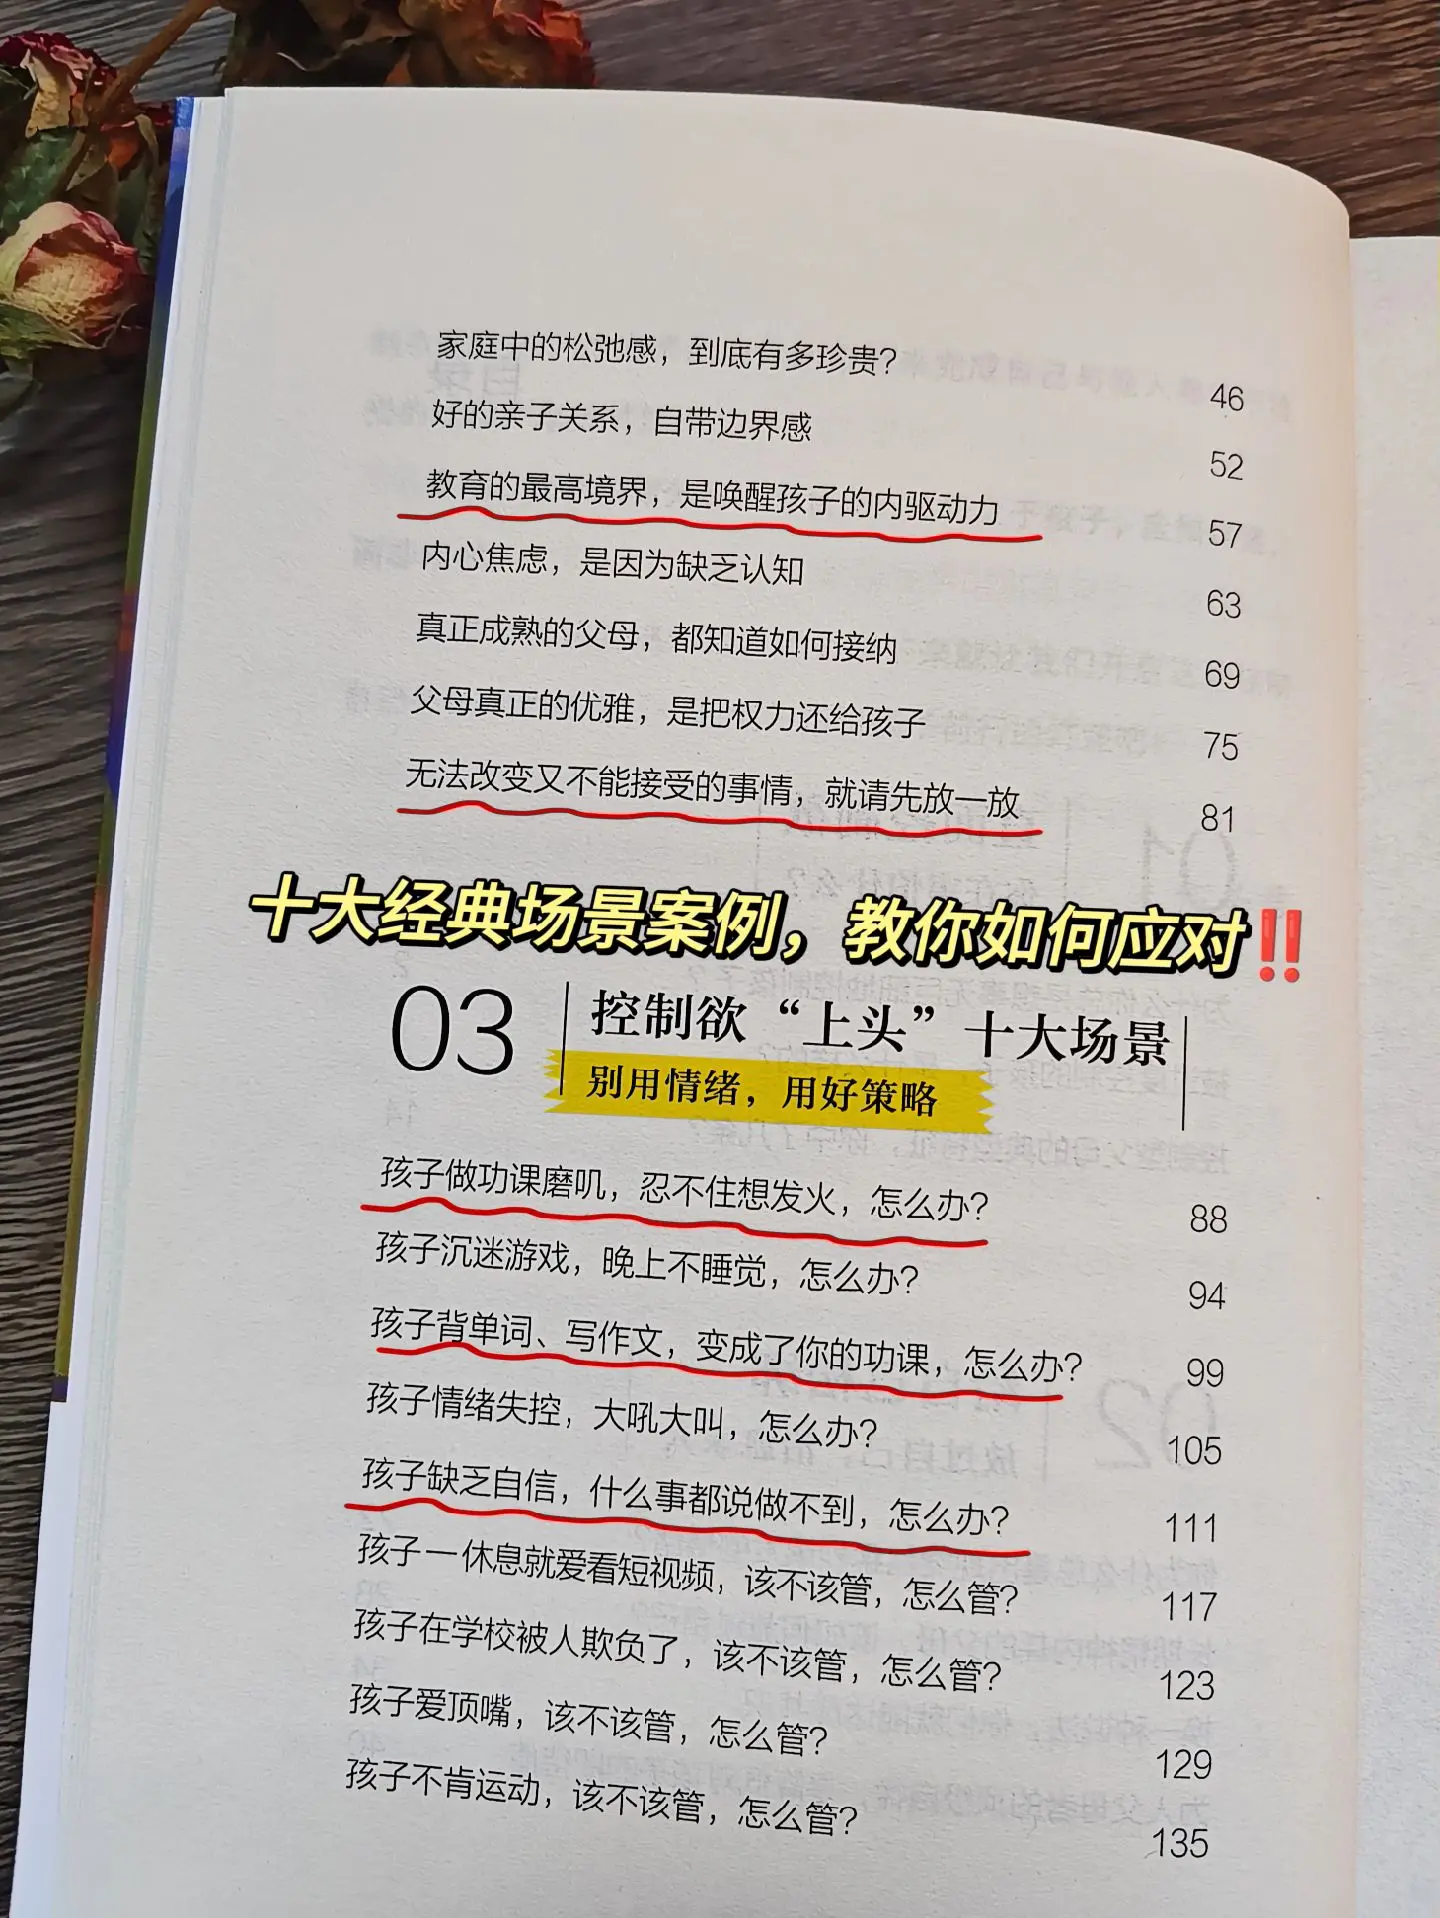 家庭中的松弛感，到底有多珍贵？ 46
好的亲子关系，自带边界感 52
教育的最高境界，是唤醒孩子的内驱动力 57
内心焦虑，是因为缺乏认知 63
真正成熟的父母，都知道如何接纳 69
父母真正的优雅，是把权力还给孩子 75
无法改变又不能接受的事情，就请先放一放 81
十大经典场景案例，教你如何应对‼️
03 控制欲“上头”十大场景
别用情绪，用好策略
孩子做功课磨叽，忍不住想发火，怎么办？ 88
孩子沉迷游戏，晚上不睡觉，怎么办？ 94
孩子背单词、写作文，变成了你的功课，怎么办？ 99
孩子情绪失控，大吼大叫，怎么办？ 105
孩子缺乏自信，什么事都说做不到，怎么办？ 111
孩子一休息就爱看短视频，该不该管，怎么管？ 117
孩子在学校被人欺负了，该不该管，怎么管？ 123
孩子爱顶嘴，该不该管，怎么管？ 129
孩子不肯运动，该不该管，怎么管？ 135